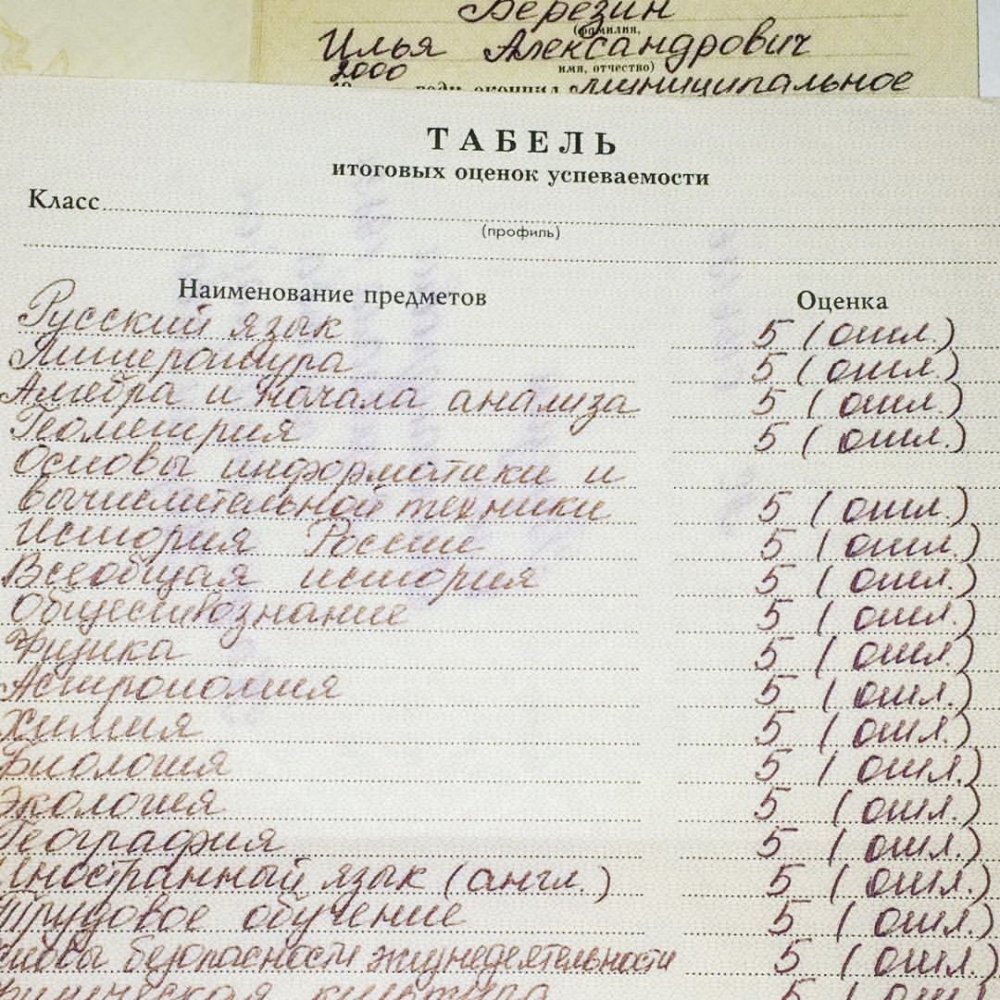 Березин
(фамилия,
Илья Александрович
имя, отчество)
2000
году окончил муниципальное
ТАБЕЛЬ
итоговых оценок успеваемости
Класс
(профиль)
Наименование предметов Оценка
Русский язык 5 (отл.)
Литература 5 (отл.)
Алгебра и начала анализа 5 (отл.)
Геометрия 5 (отл.)
Основы информатики и
вычислительной техники 5 (отл.)
История России 5 (отл.)
Всеобщая история 5 (отл.)
Обществознание 5 (отл.)
Физика 5 (отл.)
Астрономия 5 (отл.)
Химия 5 (отл.)
Биология 5 (отл.)
Экология 5 (отл.)
География 5 (отл.)
Иностранный язык (англ.) 5 (отл.)
Трудовое обучение 5 (отл.)
Основы безопасности жизнедеятельности 5 (отл.)
Физическая культура 5 (отл.)